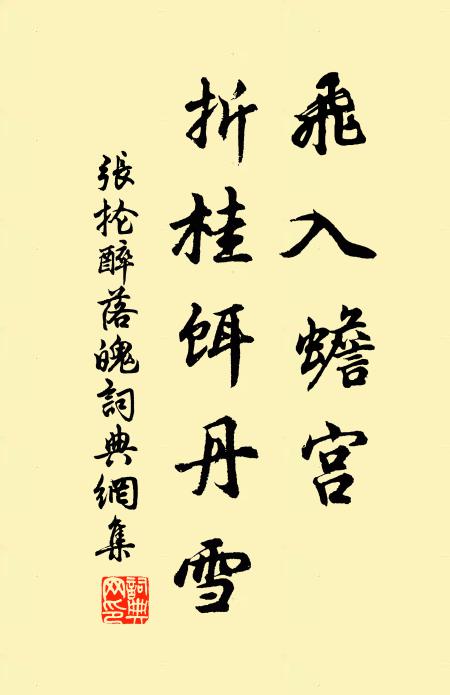 飛入蟾宮
折桂餌丹雪
張抡醉落魄詞典網集
詞典网印